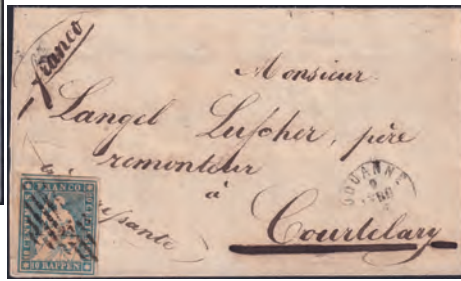 franco
Monsieur
Langel Luscher, père
remonteur
à
Courtelary
très pressante
DOUANNE
2
FRANCO
10 RAPPEN